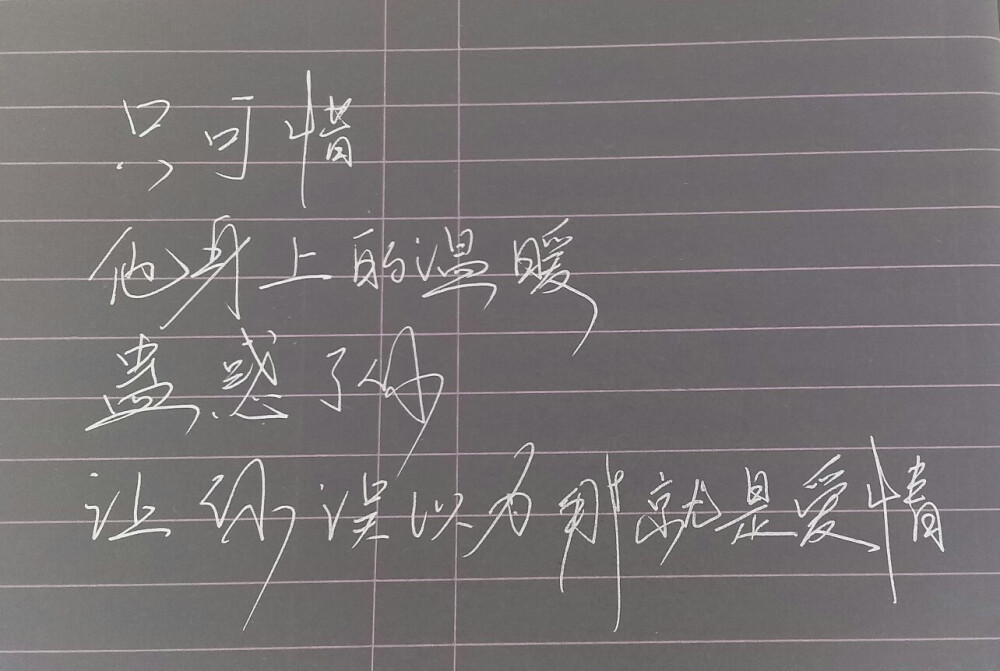 只可惜
他身上的温暖
蛊惑了你
让你误以为那就是爱情